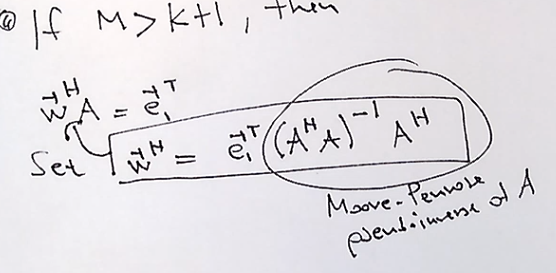 ④ If M > K+1, then
w⃗ᴴA = e⃗₁ᵀ
Set w⃗ᴴ = e⃗₁ᵀ (AᴴA)⁻¹ Aᴴ
Moore-Penrose
pseudoinverse of A